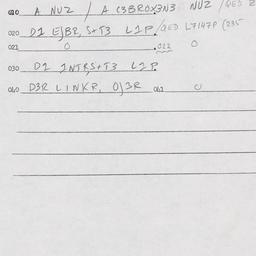 010 A NUZ / A C3BROX3N3 NUZ / QED 2
020 D1 E)BR, S+T3 L1P. / QED L7147P (235
021 0 .022 0
030 D1 INTRS+T3 L1P.
060 D3R LINKR, O)3R 061 0